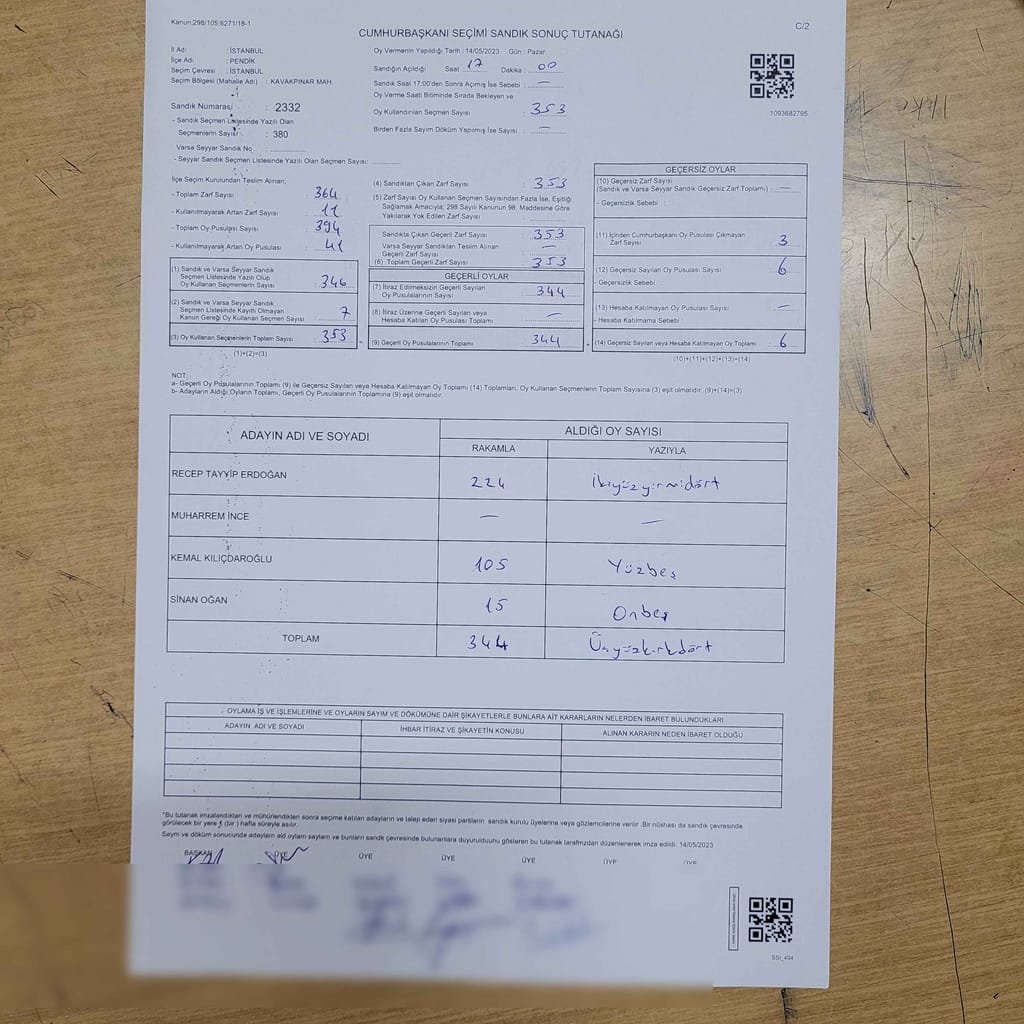 Kanun:298/105;6271/18-1
C/2
CUMHURBAŞKANI SEÇİMİ SANDIK SONUÇ TUTANAĞI
İl Adı : İSTANBUL
İlçe Adı : PENDİK
Seçim Çevresi : İSTANBUL
Seçim Bölgesi (Mahalle Adı) : KAVAKPINAR MAH.
Sandık Numarası : 2332
- Sandık Seçmen Listesinde Yazılı Olan
Seçmenlerin Sayısı : 380
Varsa Seyyar Sandık No
- Seyyar Sandık Seçmen Listesinde Yazılı Olan Seçmen Sayısı:
Oy Vermenin Yapıldığı Tarih : 14/05/2023 Gün : Pazar
Sandığın Açıldığı: Saat : 17 Dakika : 00
Sandık Saat 17:00'den Sonra Açılmış İse Sebebi : —
Oy Verme Saati Bitiminde Sırada Bekleyen ve
Oy Kullandırılan Seçmen Sayısı : 353
Birden Fazla Sayım Döküm Yapılmış İse Sayısı : —
1093682795
İlçe Seçim Kurulundan Teslim Alınan:
- Toplam Zarf Sayısı : 364
- Kullanılmayarak Artan Zarf Sayısı : 11
- Toplam Oy Pusulası Sayısı : 394
- Kullanılmayarak Artan Oy Pusulası : 41
(1) Sandık ve Varsa Seyyar Sandık
Seçmen Listesinde Yazılı Olup
Oy Kullanan Seçmenlerin Sayısı : 346
(2) Sandık ve Varsa Seyyar Sandık
Seçmen Listesinde Kayıtlı Olmayan
Kanun Gereği Oy Kullanan Seçmen Sayısı : 7
(3) Oy Kullanan Seçmenlerin Toplam Sayısı : 353
(1)+(2)=(3)
(4) Sandıktan Çıkan Zarf Sayısı : 353
(5) Zarf Sayısı Oy Kullanan Seçmen Sayısından Fazla İse, Eşitliği
Sağlamak Amacıyla; 298 Sayılı Kanunun 98. Maddesine Göre
Yakılarak Yok Edilen Zarf Sayısı
Sandıkta Çıkan Geçerli Zarf Sayısı : 353
Varsa Seyyar Sandıktan Teslim Alınan
Geçerli Zarf Sayısı : —
(6) Toplam Geçerli Zarf Sayısı : 353
GEÇERLİ OYLAR
(7) İtiraz Edilmeksizin Geçerli Sayılan
Oy Pusulalarının Sayısı : 344
(8) İtiraz Üzerine Geçerli Sayılan veya
Hesaba Katılan Oy Pusulası Toplamı : —
(9) Geçerli Oy Pusulalarının Toplamı : 344
GEÇERSİZ OYLAR
(10) Geçersiz Zarf Sayısı
(Sandık ve Varsa Seyyar Sandık Geçersiz Zarf Toplamı) : —
- Geçersizlik Sebebi :
(11) İçinden Cumhurbaşkanı Oy Pusulası Çıkmayan
Zarf Sayısı : 3
(12) Geçersiz Sayılan Oy Pusulası Sayısı : 6
- Geçersizlik Sebebi :
(13) Hesaba Katılmayan Oy Pusulası Sayısı : —
- Hesaba Katılmama Sebebi :
(14) Geçersiz Sayılan veya Hesaba Katılmayan Oy Toplamı : 6
(10)+(11)+(12)+(13)=(14)
NOT:
a- Geçerli Oy Pusulalarının Toplamı (9) ile Geçersiz Sayılan veya Hesaba Katılmayan Oy Toplamı (14) Toplamları, Oy Kullanan Seçmenlerin Toplam Sayısına (3) eşit olmalıdır. (9)+(14)=(3)
b- Adayların Aldığı Oyların Toplamı, Geçerli Oy Pusulalarının Toplamına (9) eşit olmalıdır.
ADAYIN ADI VE SOYADI ALDIĞI OY SAYISI
RAKAMLA YAZIYLA
RECEP TAYYİP ERDOĞAN 224 İkiyüzyirmidört
MUHARREM İNCE — —
KEMAL KILIÇDAROĞLU 105 Yüzbeş
SİNAN OĞAN 15 Onbeş
TOPLAM 344 Üçyüzkırkdört
OYLAMA İŞ VE İŞLEMLERİNE VE OYLARIN SAYIM VE DÖKÜMÜNE DAİR ŞİKAYETLERLE BUNLARA AİT KARARLARIN NELERDEN İBARET BULUNDUKLARI
ADAYIN ADI VE SOYADI İHBAR İTİRAZ VE ŞİKAYETİN KONUSU ALINAN KARARIN NEDEN İBARET OLDUĞU
*Bu tutanak imzalandıktan ve mühürlendikten sonra seçime katılan adayların ve talep eden siyasi partilerin sandık kurulu üyelerine veya gözlemcilerine verilir. Bir nüshası da sandık çevresinde
görülecek bir yere 1 (bir) hafta süreyle asılır.
Sayım ve döküm sonucunda adayların aldı oyların sayıların ve bunların sandık çevresinde bulunanlara duyurulduğunu gösteren bu tutanak tarafımızdan düzenlenerek imza edildi. 14/05/2023
BAŞKAN ÜYE ÜYE ÜYE ÜYE ÜYE ÜYE
SSİ_404